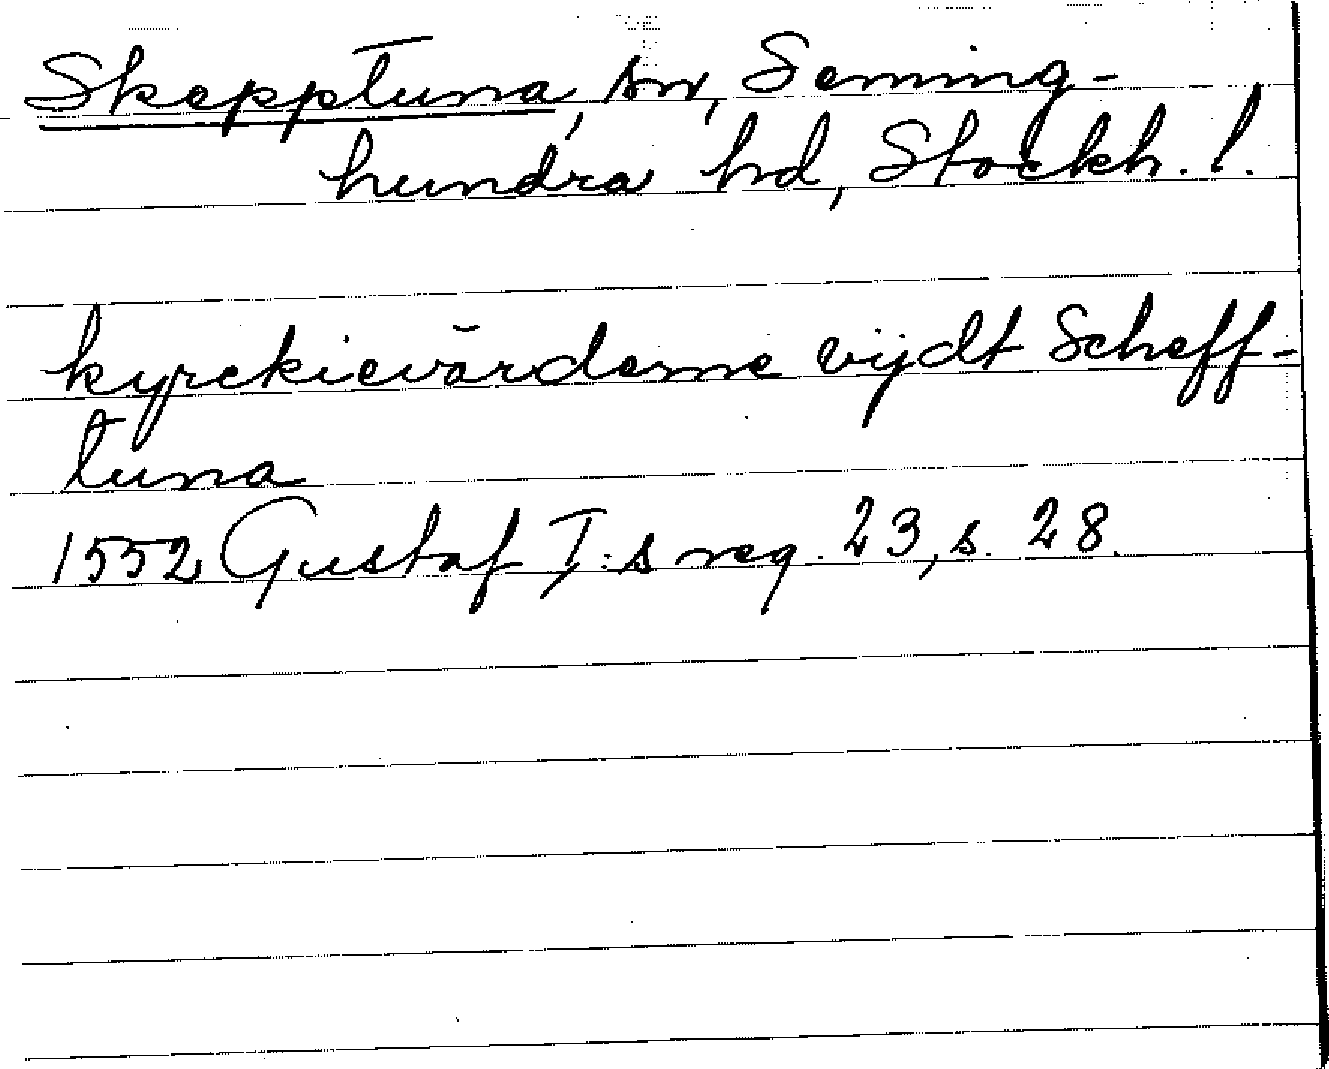 Skepptuna, sn, Seming-
hundra hd, Stockh. l.
kyrckievärderne vijdt Scheff-
tuna
1552 Gustaf I:s reg. 23, s. 28.